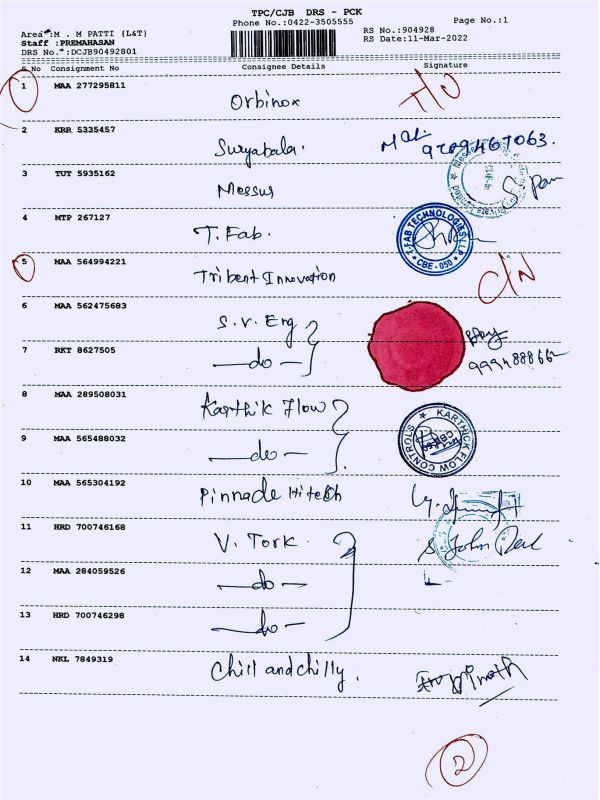 TPC/CJB DRS - PCK
Phone No.:0422-3505555
Page No.:1
Area :M . M PATTI {L&T}
RS No.:904928
Staff :PREMAHASAN
RS Date:11-Mar-2022
DRS No. :DCJB90492801
S No Consignment No Consignee Details Signature
1 MAA 277295811 Orbinox
2 KRR 5335457 Suryabala.
3 TUT 5935162 Messus
4 MTP 267127 T. Fab. T-FAB TECHNOLOGIES LLP CBE-050
5 MAA 564994221 Tribent Innovation C/N
6 MAA 562475683 S.V. Eng
7 RKT 8627505 —do—
8 MAA 289508031 Karthik Flow
9 MAA 565488032 —do— KARTHICK FLOW CONTROLS
10 MAA 565304192 Pinnacle Hitech
11 HRD 700746168 V. Tork
12 MAA 284059526 —do—
13 HRD 700746298 —do—
14 NKL 7849319 Chill and chilly.
2